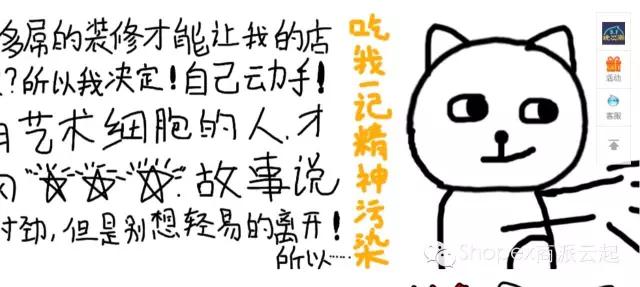 多屌的装修才能让我的店
?所以我决定!自己动手!
艺术细胞的人,才
☆☆☆故事说
劲,但是别想轻易的离开!
所以……
吃我一记精神污染
活动
客服
Shopex商派云起